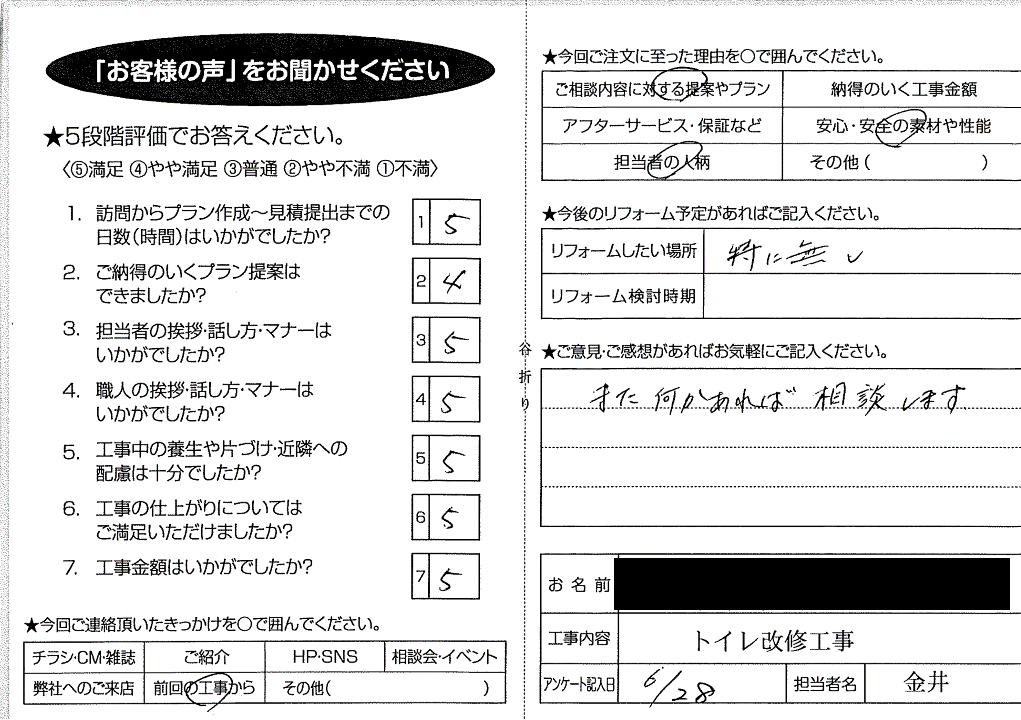 「お客様の声」をお聞かせください
★5段階評価でお答えください。
〈⑤満足 ④やや満足 ③普通 ②やや不満 ①不満〉
1. 訪問からプラン作成～見積提出までの
日数(時間)はいかがでしたか?
1 5
2. ご納得のいくプラン提案は
できましたか?
2 4
3. 担当者の挨拶・話し方・マナーは
いかがでしたか?
3 5
4. 職人の挨拶・話し方・マナーは
いかがでしたか?
4 5
5. 工事中の養生や片づけ・近隣への
配慮は十分でしたか?
5 5
6. 工事の仕上がりについては
ご満足いただけましたか?
6 5
7. 工事金額はいかがでしたか?
7 5
★今回ご連絡頂いたきっかけを○で囲んでください。
チラシ・CM・雑誌 ご紹介 HP・SNS 相談会・イベント
弊社へのご来店 前回の工事から その他( )
谷折り
★今回ご注文に至った理由を○で囲んでください。
ご相談内容に対する提案やプラン 納得のいく工事金額
アフターサービス・保証など 安心・安全の素材や性能
担当者の人柄 その他( )
★今後のリフォーム予定があればご記入ください。
リフォームしたい場所 特に無し
リフォーム検討時期
★ご意見・ご感想があればお気軽にご記入ください。
また何かあれば 相談します
お名前
工事内容 トイレ改修工事
アンケート記入日 6/28 担当者名 金井